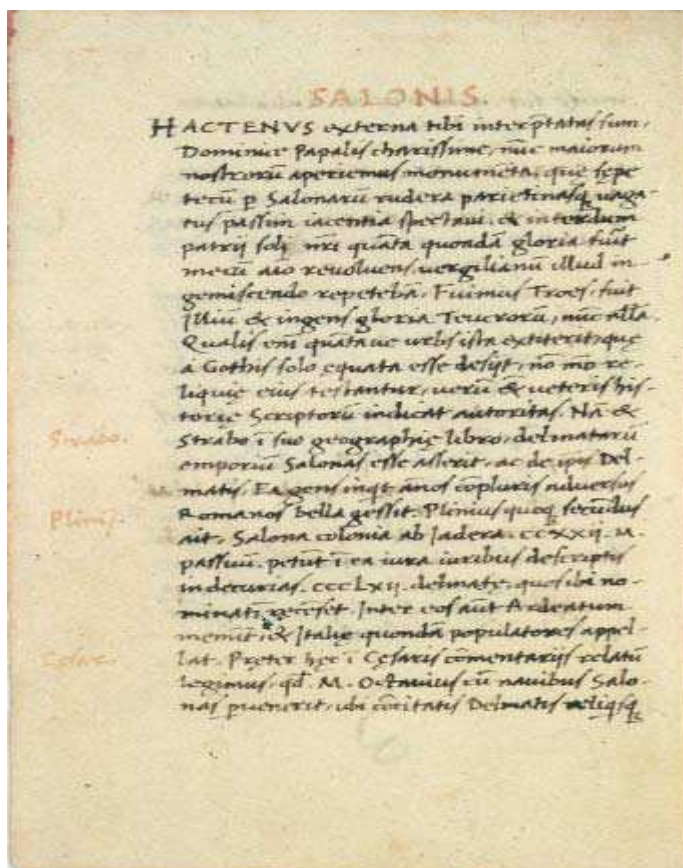 .SALONIS.
HACTENVS externa tibi interp̄tatus sum.
Dominice Papalis charissime, nūc maiorum
nostrorū aperiemus monumēta, que sepe
p Salonarū rudera parietinasq; uaga-
tus passim iacentia spectaui. & interdum
patrij soli nr̄i quāta quondā gloria fuit
mecū aīo reuoluens, uergilianū illud in-
gemiscendo repetebā. Fuimus Troes, fuit
Jlliū & ingens gloria Teucrorū, nūc
Qualis em̄ quātaue urbs ista extiterit, que
a Gothis solo equata esse desijt, nō mō re-
liquie eius testantur, uerū & ueteris his-
torie Scriptorū indicat autoritas. Nā &
Strabo.
Strabo ī suo geographię libro, delmatarū
emporiū Salonas esse asserit, ac de ipis Del-
matis. Ea gens inqt ānos cōpluris aduersus
Romanos bella gessit. Plinius quoq; secundus
Plinij.
ait, Salona colonia ab Jadera. CCXXII. M.
passuū. petūt ī ea iura uiribus descriptis
in decurias. CCCLXII. delmatę. quos ibi no-
minatī reces̄et. Inter eos aut Ardeatum
memīt, & Italię quondā populatores appel-
Cesar.
lat. Pręter hęc ī Cęsaris cōmentarijs relatū
legimus, qd̄ M. Octauius cū nauibus Salo-
nas puenerit, ubi cōcitatis Delmatis reliqisq;